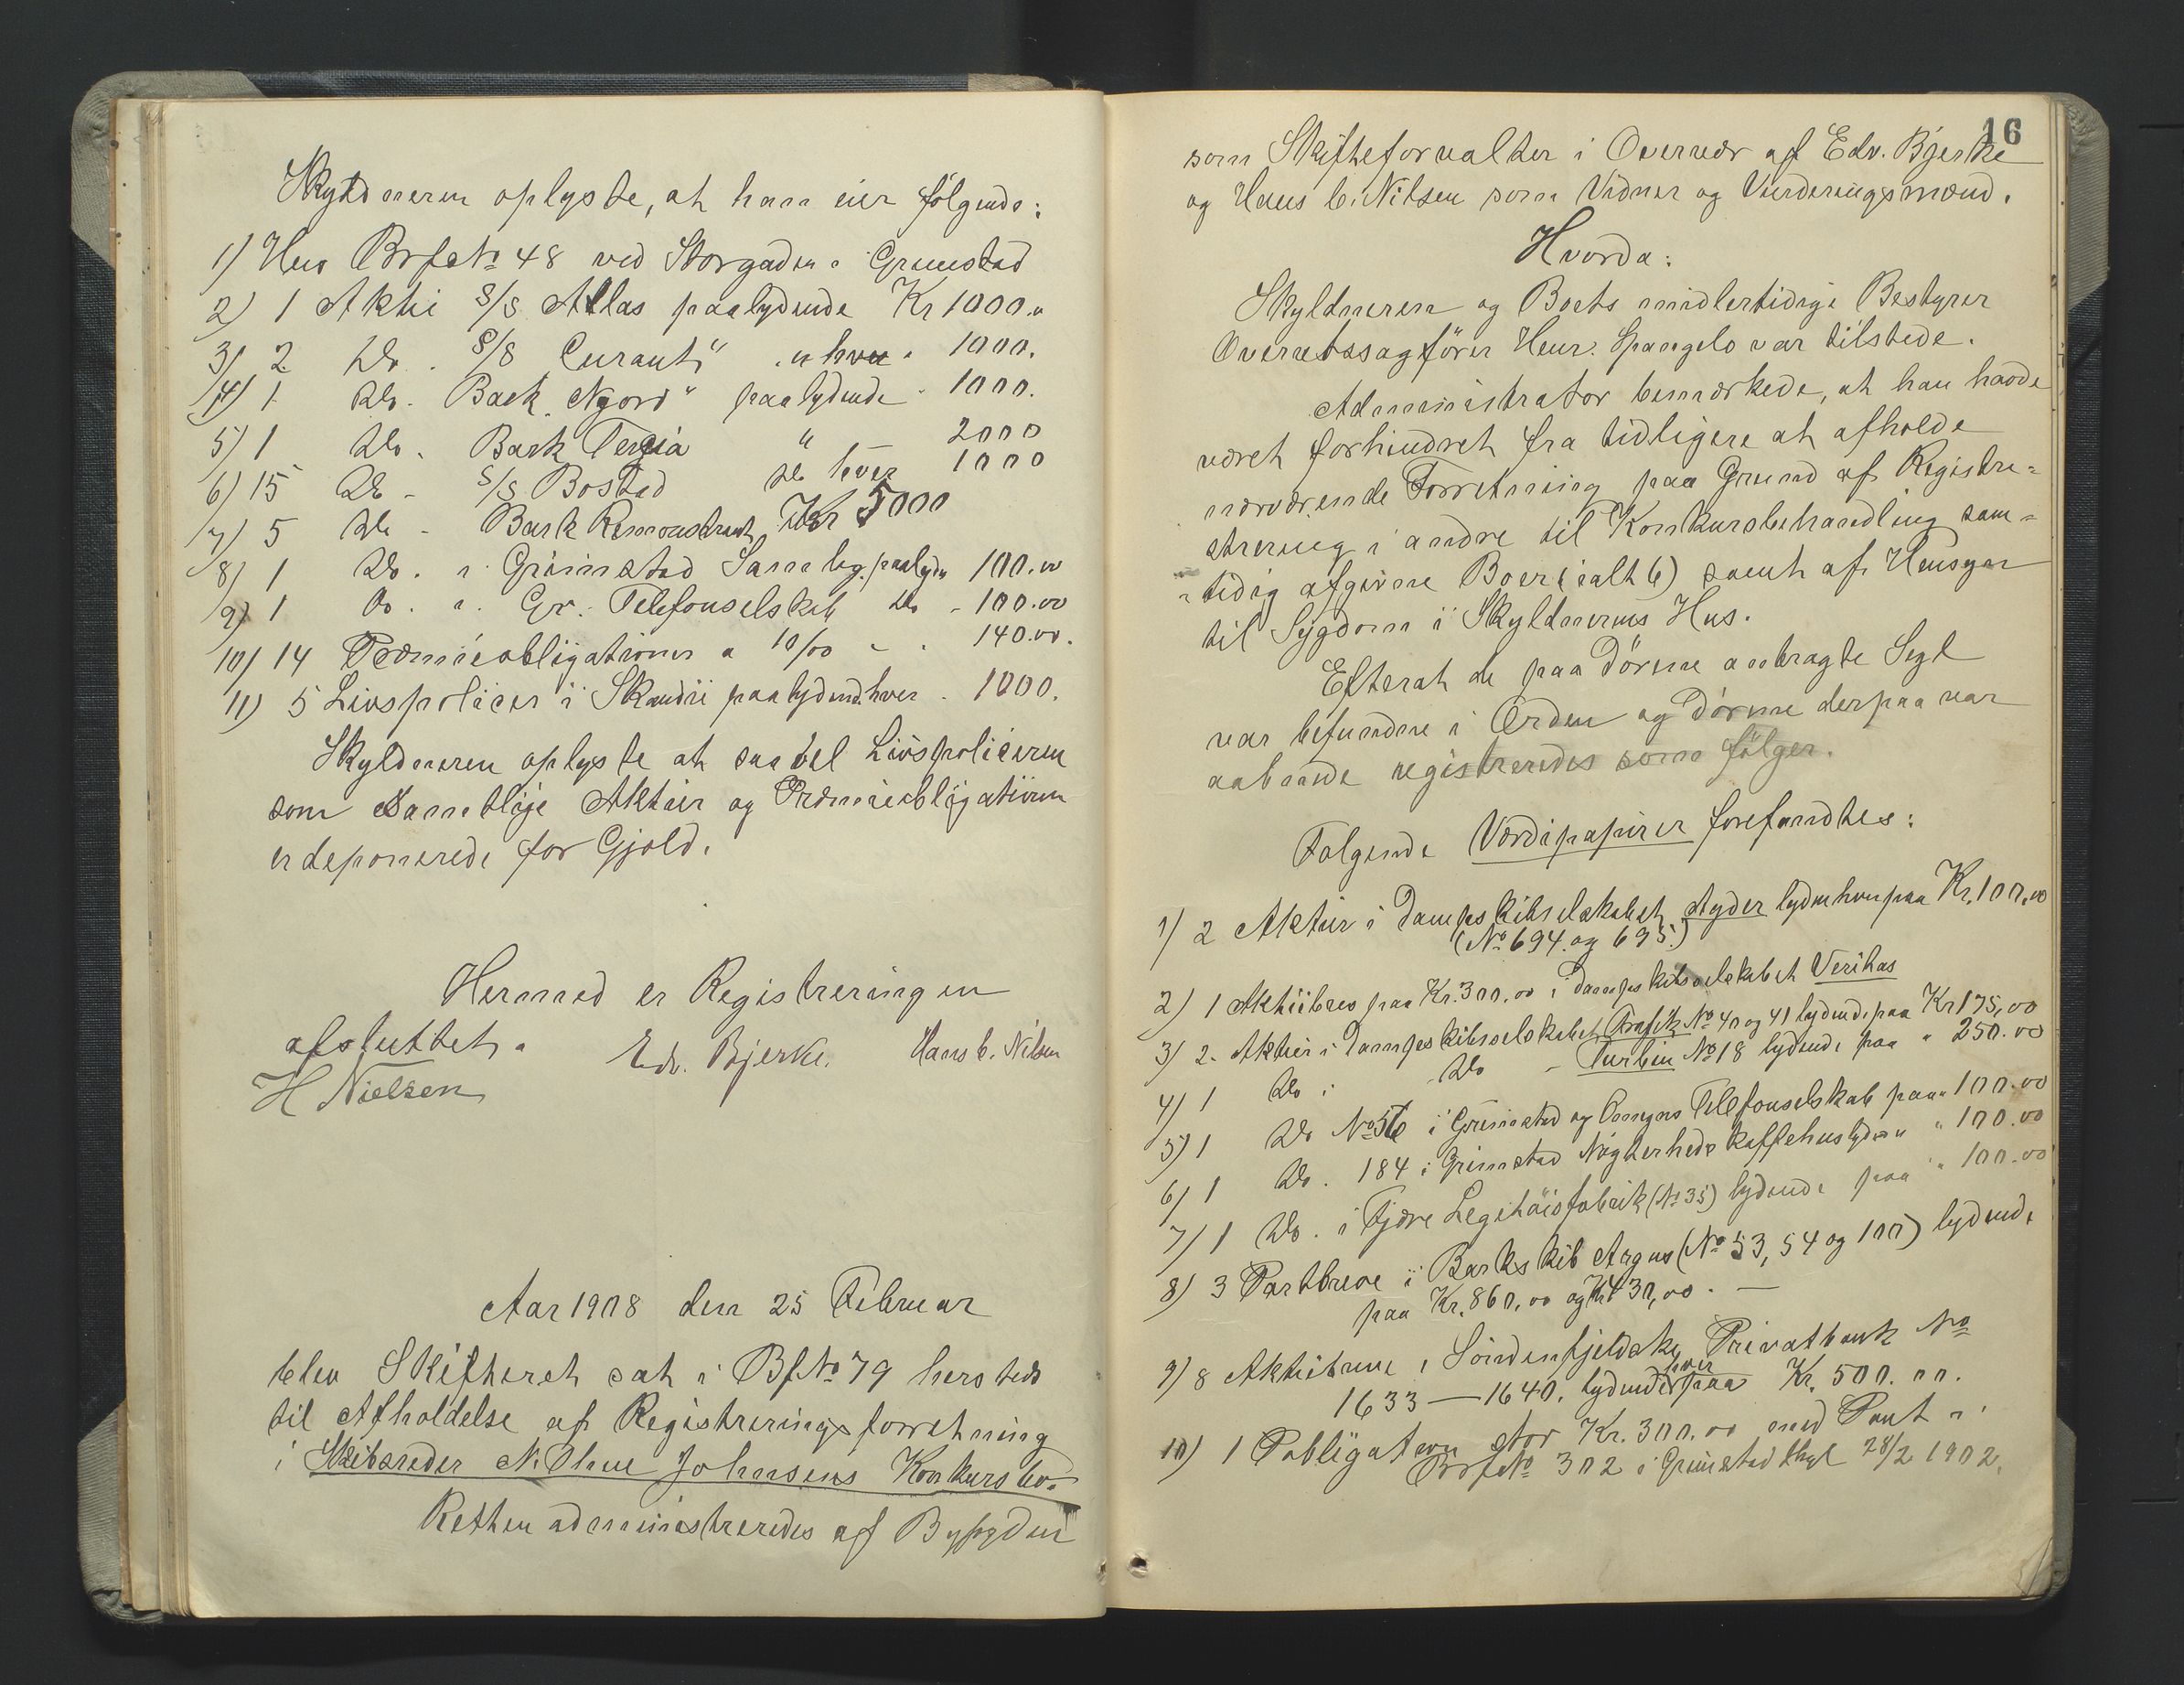 Skyldneren oplyste, at han eier følgende:
1) Hus BrfNo 48 ved Storgaden i Grimstad
2) 1 Aktie S/S Atlas paalydende Kr 1000.
3) 2 Do. S/S "Curant" hver 1000.
4) 1 Do. Bark "Njord" paalydende 1000.
5) 1 Do. Bark Tercia " — 2000
6) 15 Do - S/S Bostad Do hver 1000
7) 5 Do - Bark Remonstrant Kr 5000
8) 1 Do. i Grimstad Samlag. paalyd. 100.00
9) 1 Do. i. Gr. Telefonselskab Do - 100.00
10) 14 Præmieobligationer a 10/00 - . 140.00.
11) 5 Livspolicer i Skandii paalydend. hver . 1000.
Skyldneren oplyste at saavel Livspolicerne
som samtlige Aktier og Præmieobligationer
er deponerede for Gjæld.
Hermed er Registreringen
afsluttet.
Edv. Bjerke. Hans C. Nilsen
H Nielsen
Aar 1908 den 25 Februar
blev Skifteret sat i BfNo 79 hersteds
til Afholdelse af Registreringsforretning
i Skibsreder N. Ohne Johnsens Konkursbo.
Retten administreredes af Byfogden
16
som Skifteforvalter i Overvær af Edv. Bjerke
og Hans C. Nilsen som Vidner og Vurderingsmænd.
Hvorda:
Skyldneren og Boets midlertidige Bestyrer
Overretssagfører Henr. Spangelo var tilstede.
Administrator bemærkede, at han havde
været forhindret fra tidligere at afholde
nærværende Forretning paa Grund af Registre=
strering i andre til Konkursbehandling sam=
=tidig afgivne Boer (ialt 6) samt af Hensyn
til Sygdom i Skyldnerens Hus.
Efterat de paa Dørene anbragte Segl
var befundne i Orden og Dørene derpaa var
aabnede registreredes som følger.
Følgende Værdipapirer forefandtes:
1) 2 Aktier i Dampskibselskabet Agder lydende hver paa Kr. 100.00
(No 694. og 695.)
2) 1 Aktiebrev paa Kr. 300.00 i Dampskibsselskabet Veritas
3) 2. Aktier i Dampskibsselskabet Trafik No 40 og 41 lydende paa Kr 175,00
4) 1 Do i Do - Turbin No 18 lydende paa " 250.00
5) 1 Do No 56 i Grimstad og Omegns Telefonselskab paa " 100.00
6) 1 Do. 184 i Grimstad Nøgterheds Kaffehus lyden " " 100.00
7) 1 Do. i Fjære Legetøisfabrik (No 35) lydende paa " 100.00
8) 3 Partbreve i Barkskib Argus (No 53, 54 og 100) lydende
paa Kr. 860,00 og Kr 430,00. —
9) 8 Aktiebreve i Søndenfjeldske Privatbank No
1633 — 1640. lydende hver paa Kr. 500.00.
10) 1 Pobligation stor Kr. 300.00 med Pant i
BrfNo 302 i Grimstad thgl 28/2 1902.